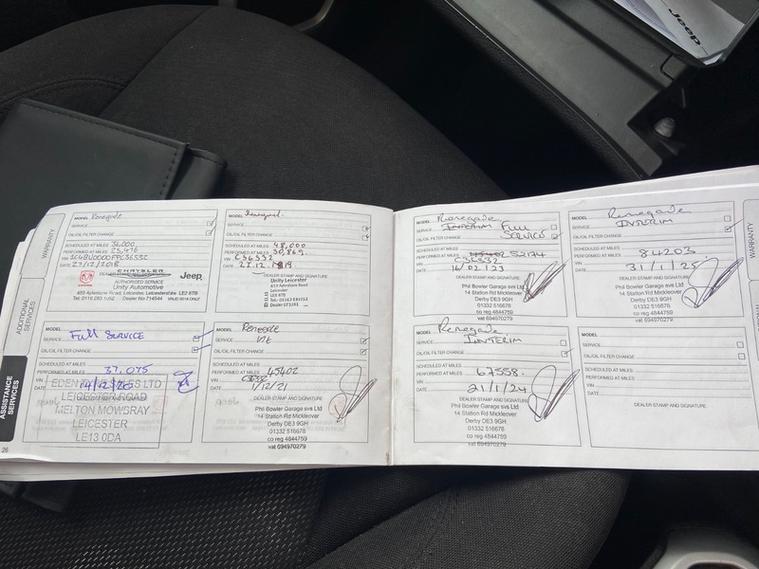 MODEL Renegade
SERVICE
OIL/OIL FILTER CHANGE
SCHEDULED AT MILES 36,000
PERFORMED AT MILES 25,476
VIN
DATE 27/12/2018
CHRYSLER
Jeep
AUTHORISED SERVICE
Unity Automotive
MODEL Renegade
SERVICE
OIL/OIL FILTER CHANGE
SCHEDULED AT MILES 48,000
PERFORMED AT MILES 30,869
VIN C36532
DATE
DEALER STAMP AND SIGNATURE
Unity Leicester
MODEL
SERVICE Full SERVICE
OIL/OIL FILTER CHANGE
SCHEDULED AT MILES
PERFORMED AT MILES 37,075
VIN
DATE
LEICESTER ROAD
MELTON MOWSRAY
LEICESTER
LE13 0DA
MODEL Renegade
SERVICE
OIL/OIL FILTER CHANGE
SCHEDULED AT MILES
PERFORMED AT MILES 45402
VIN
DATE 1/12/21
DEALER STAMP AND SIGNATURE
Phil Bowler Garage svs Ltd
14 Station Rd Mickleover
Derby DE3 9GH
01332 516678
co reg 4844759
vat 694970279
ADDITIONAL SERVICES
WARRANTY
ASSISTANCE SERVICES
26
MODEL Renegade
SERVICE INTERIM Full SERVICE
OIL/OIL FILTER CHANGE
SCHEDULED AT MILES
PERFORMED AT MILES 52134
VIN C36532
DATE 16/02/23
DEALER STAMP AND SIGNATURE
Phil Bowler Garage svs Ltd
14 Station Rd Mickleover
Derby DE3 9GH
01332 516678
co reg 4844759
vat 694970279
MODEL Renegade
SERVICE INTERIM
OIL/OIL FILTER CHANGE
SCHEDULED AT MILES
PERFORMED AT MILES 84203
VIN
DATE 31/1/25
DEALER STAMP AND SIGNATURE
Phil Bowler Garage svs Ltd
14 Station Rd Mickleover
Derby DE3 9GH
01332 516678
co reg 4844759
vat 694970279
MODEL Renegade
SERVICE INTERIM
OIL/OIL FILTER CHANGE
SCHEDULED AT MILES
PERFORMED AT MILES 67558
VIN
DATE 21/1/24
DEALER STAMP AND SIGNATURE
Phil Bowler Garage svs Ltd
14 Station Rd Mickleover
Derby DE3 9GH
01332 516678
co reg 4844759
vat 694970279
MODEL
SERVICE
OIL/OIL FILTER CHANGE
SCHEDULED AT MILES
PERFORMED AT MILES
VIN
DATE
DEALER STAMP AND SIGNATURE
WARRANTY
Jeep